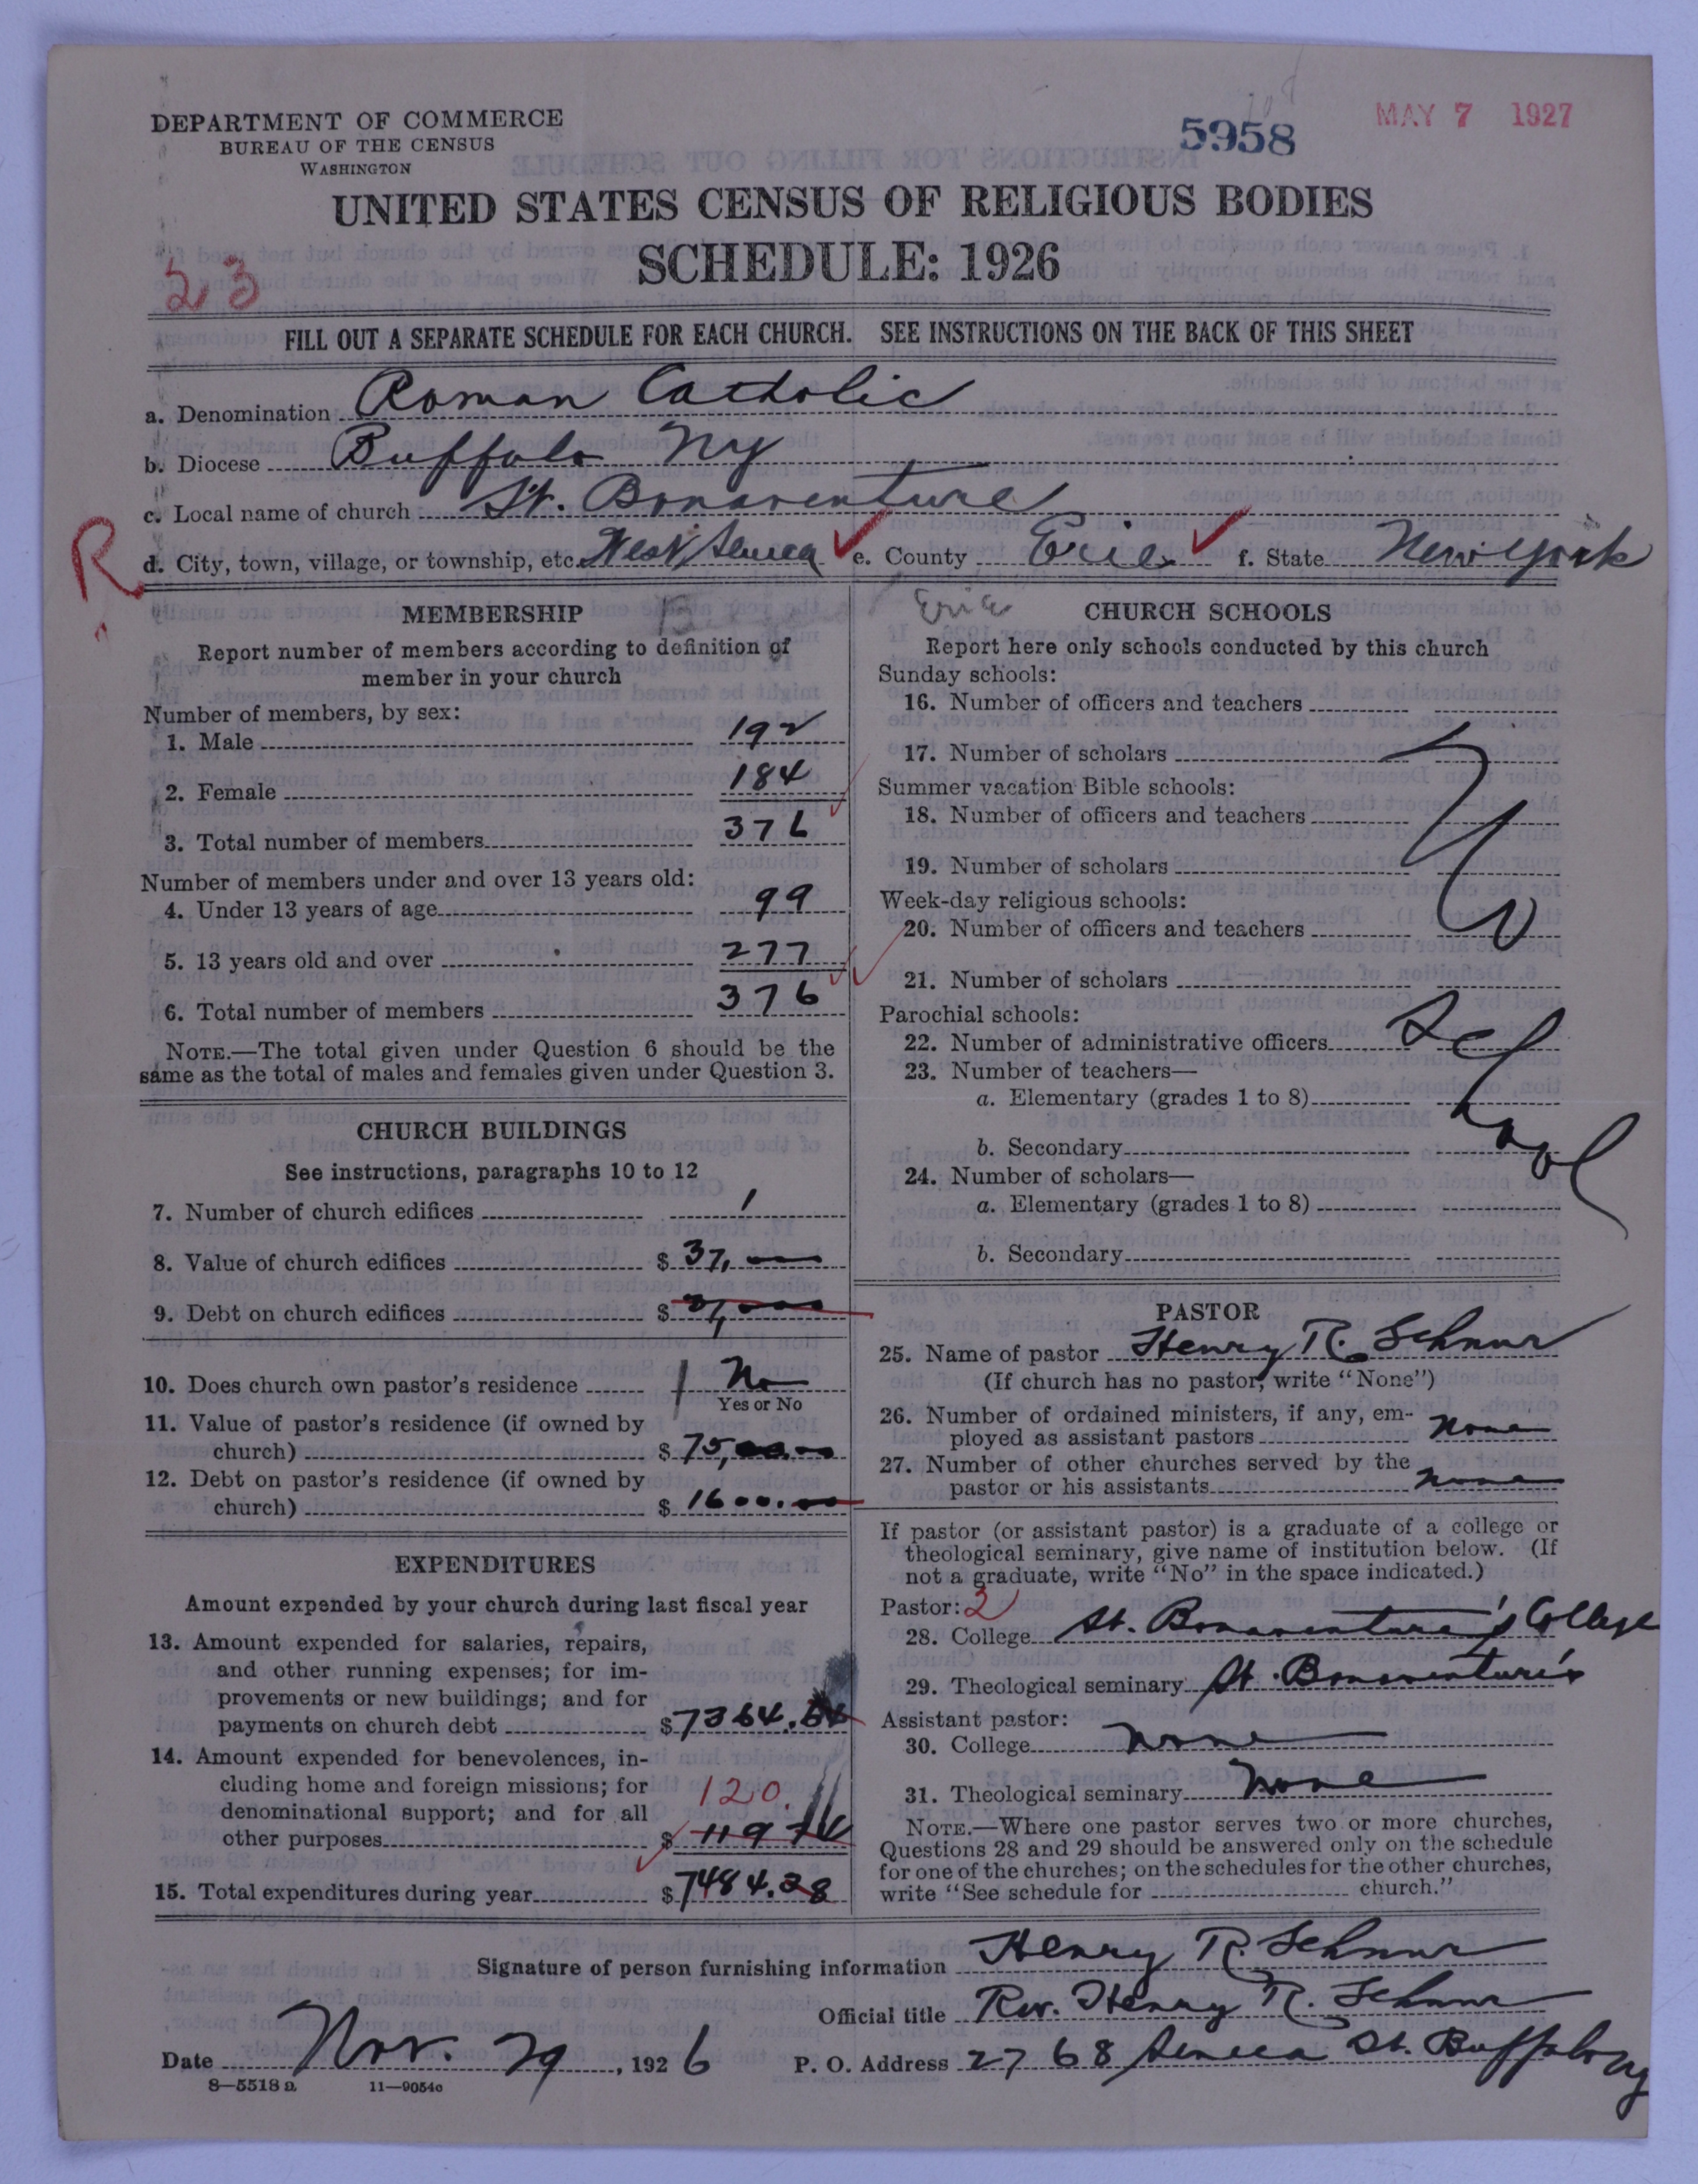 DEPARTMENT OF COMMERCE
BUREAU OF THE CENSUS
WASHINGTON
5958
MAY 7 1927
UNITED STATES CENSUS OF RELIGIOUS BODIES
SCHEDULE: 1926
23
FILL OUT A SEPARATE SCHEDULE FOR EACH CHURCH. SEE INSTRUCTIONS ON THE BACK OF THIS SHEET
a. Denomination Roman Catholic
b. Diocese Buffalo Ny
c. Local name of church St. Bonaventure
R
d. City, town, village, or township, etc. West Seneca e. County Erie f. State New York
Erie
MEMBERSHIP
Report number of members according to definition of
member in your church
Number of members, by sex:
1. Male 192
2. Female 184
3. Total number of members 376
Number of members under and over 13 years old:
4. Under 13 years of age 99
5. 13 years old and over 277
6. Total number of members 376
NOTE.—The total given under Question 6 should be the
same as the total of males and females given under Question 3.
CHURCH BUILDINGS
See instructions, paragraphs 10 to 12
7. Number of church edifices 1
8. Value of church edifices $ 37,000
9. Debt on church edifices $
10. Does church own pastor's residence No
Yes or No
11. Value of pastor's residence (if owned by
church) $ 75,00.00
12. Debt on pastor's residence (if owned by
church) $ 1600.00
EXPENDITURES
Amount expended by your church during last fiscal year
13. Amount expended for salaries, repairs,
and other running expenses; for im-
provements or new buildings; and for
payments on church debt $7364.54
14. Amount expended for benevolences, in-
cluding home and foreign missions; for
denominational support; and for all
120.
other purposes $ 119 74
15. Total expenditures during year $7484.28
CHURCH SCHOOLS
Report here only schools conducted by this church
Sunday schools:
16. Number of officers and teachers
17. Number of scholars
Summer vacation Bible schools:
18. Number of officers and teachers
19. Number of scholars
Week-day religious schools:
20. Number of officers and teachers
21. Number of scholars
Parochial schools:
22. Number of administrative officers
23. Number of teachers—
a. Elementary (grades 1 to 8)
b. Secondary
24. Number of scholars—
a. Elementary (grades 1 to 8)
b. Secondary
No School
PASTOR
25. Name of pastor Henry R. Schnur
(If church has no pastor, write "None")
26. Number of ordained ministers, if any, em-
ployed as assistant pastors None
27. Number of other churches served by the
pastor or his assistants none
If pastor (or assistant pastor) is a graduate of a college or
theological seminary, give name of institution below. (If
not a graduate, write "No" in the space indicated.)
Pastor: 2
28. College St. Bonaventure's College
29. Theological seminary St. Bonaventure's
Assistant pastor:
30. College none
31. Theological seminary none
NOTE.—Where one pastor serves two or more churches,
Questions 28 and 29 should be answered only on the schedule
for one of the churches; on the schedules for the other churches,
write "See schedule for church."
Signature of person furnishing information Henry R. Schnur
Official title Rev. Henry R. Schnur
Date Nov. 29, 1926 P. O. Address 2768 Seneca St. Buffalo Ny
8—5518 a 11—9054c